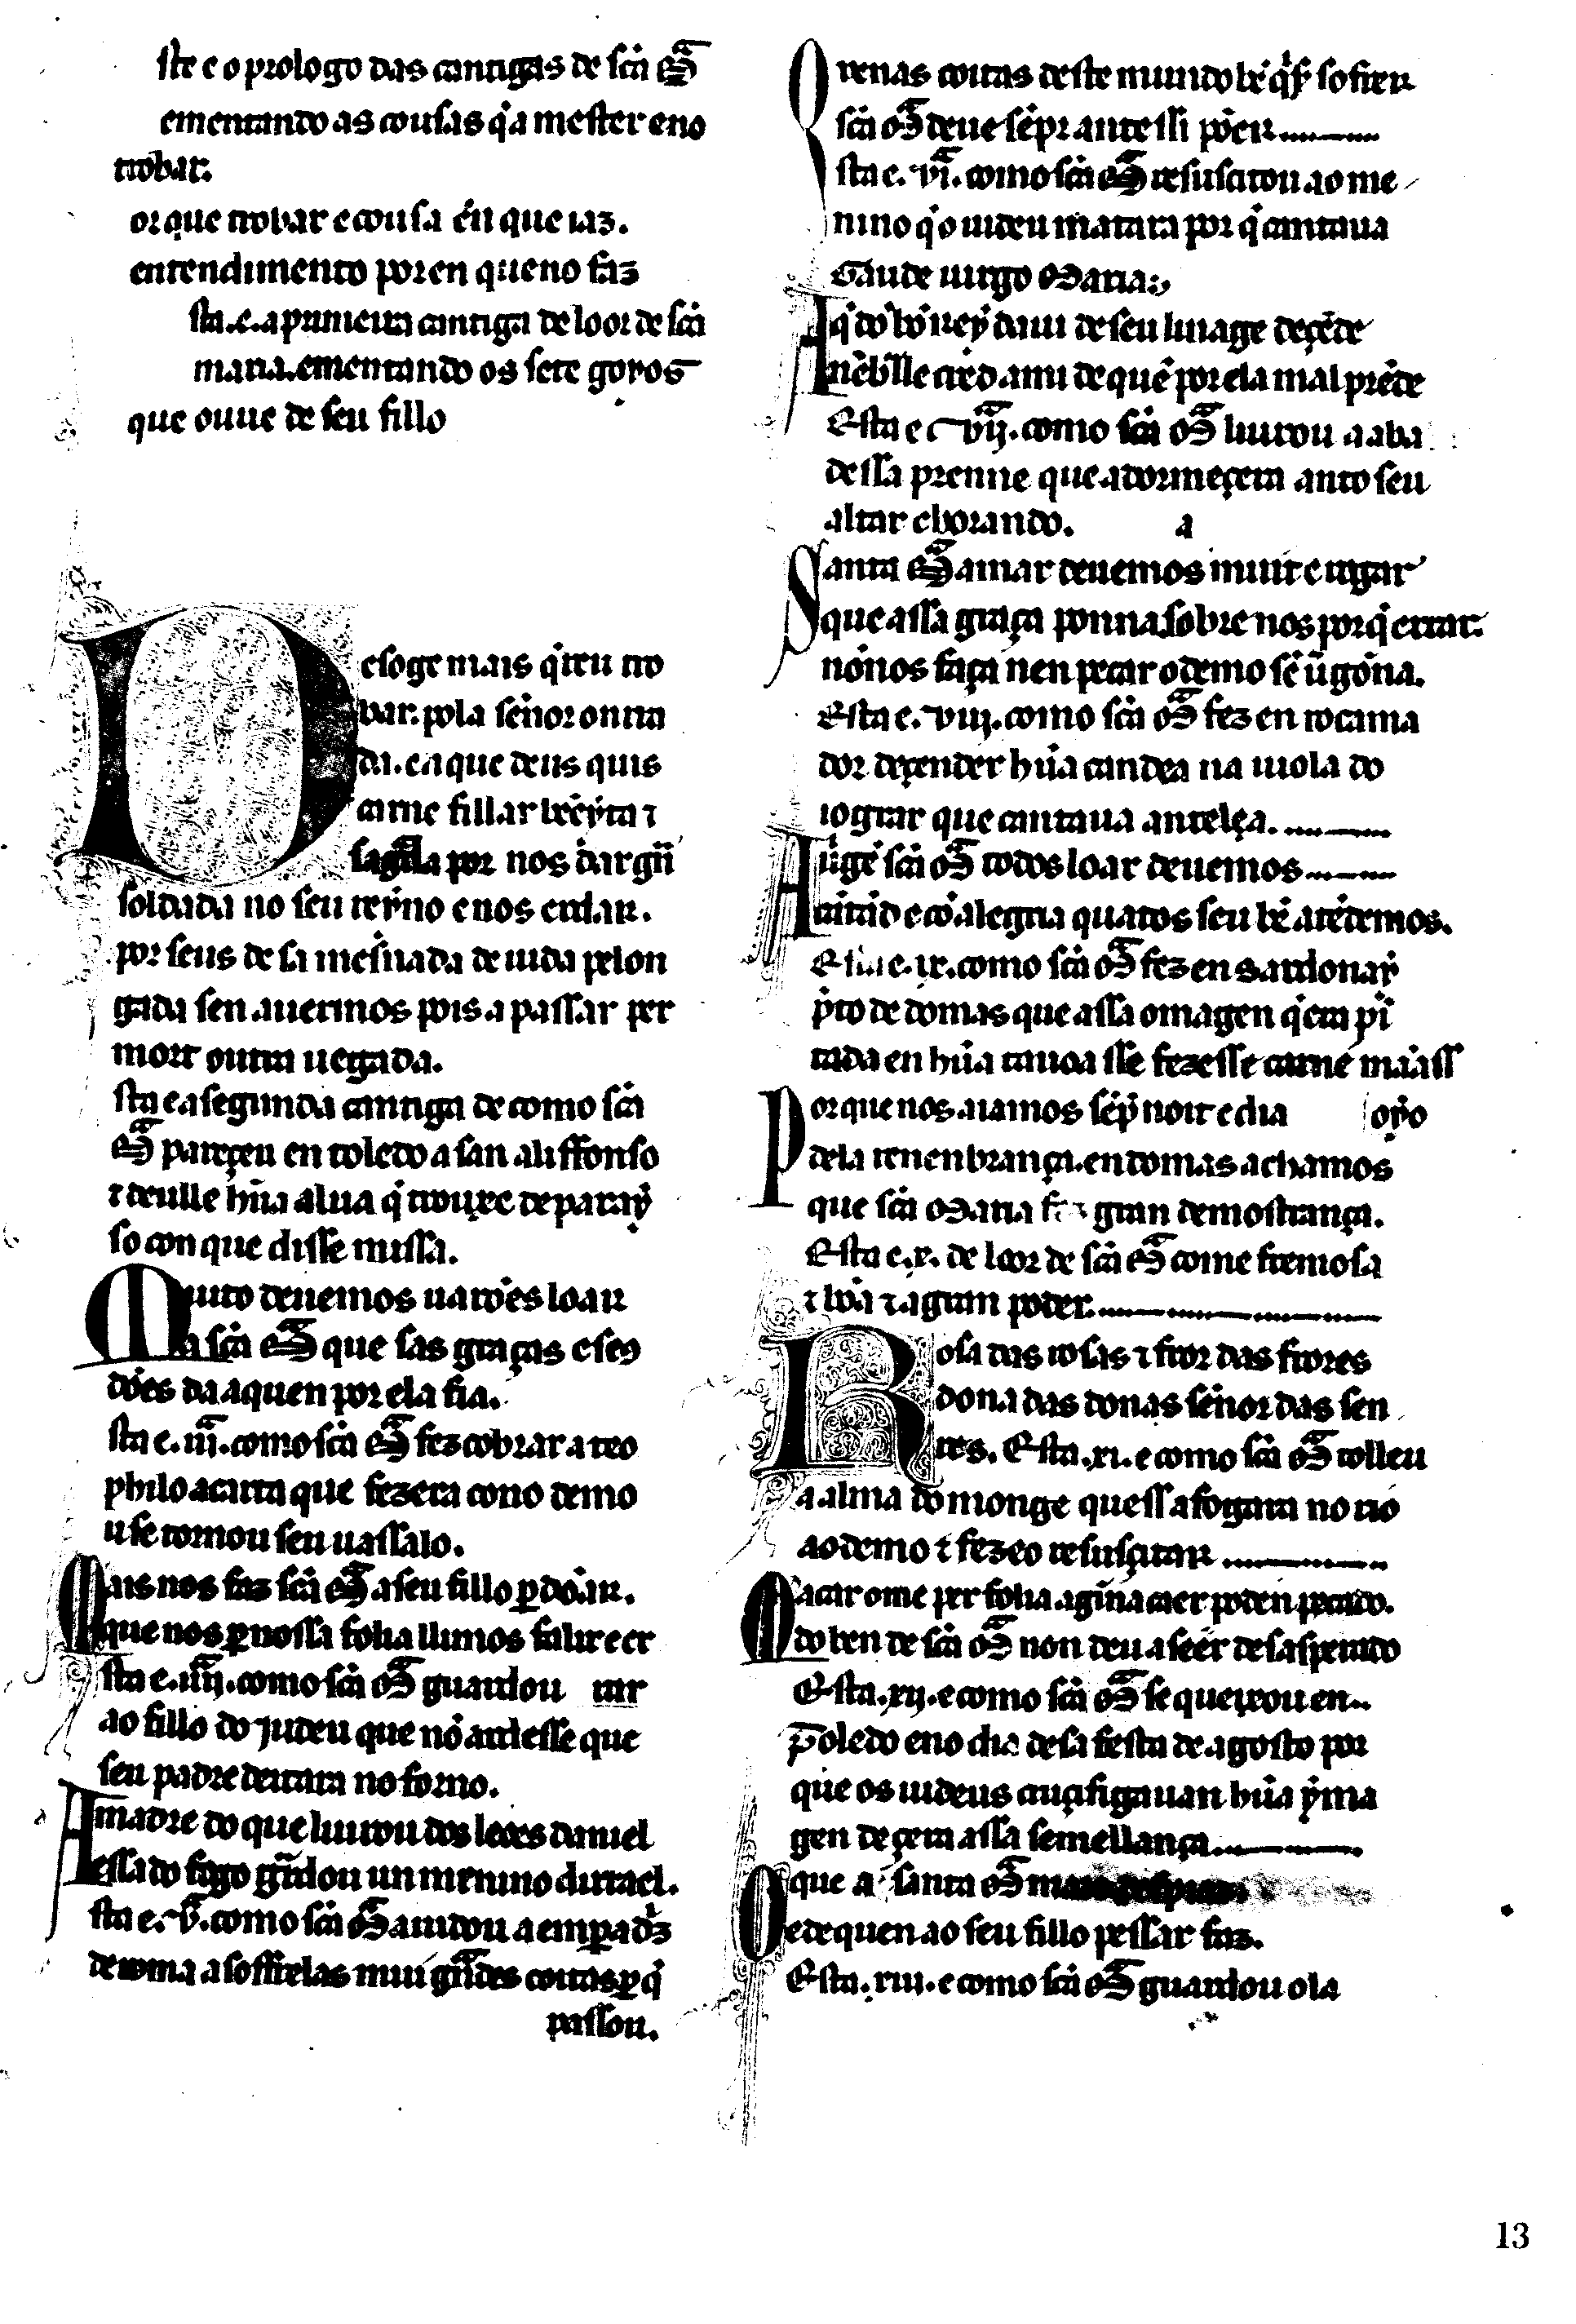 ste e o prologo das cantigas de scã Mª
ementando as cousas q̇ a mester eno
trobar.
or que trobar e cousa en que iaz.
entendimento poren queno faz
sta. e. a primeira cantiga de loor de scã
maria. ementando os sete goyos
que ouue de seu fillo
Desoge mais q̇reu tro
bar. pola señor onrra
da. en que deus quis
carne fillar bẽeyta ⁊
sagrada por nos dar grã
soldada no seu reyno e nos erdar.
por seus de sa mesnada de uida perlon
gada sen auermos pois a passar per
mort outra uegada.
sta e a segunda cantiga de como scã
Mª pareçeu en toledo a san aliffonso
⁊ deulle hũa alua q̇ trouxe de paray
so con que disse missa.
Muito deuemos uarões loar
a scã Mª que sas graças e seus
dões da a quen por ela fia.
sta e. iij. como scã Mª fez cobrar a teo
philo a carta que fezera cono demo
u se tornou seu uassalo.
Mais nos faz scã Mª a seu fillo ꝑdõar.
que nos ꝑ nossa folia llimos falir e er
sta e. iiij. como scã Mª guardou rar
ao fillo do judeu que nõ ardesse que
seu padre deitara no forno.
A madre do que liurou dos leões daniel
essa do fogo guardou un menino dirrael.
sta e. v. como scã Mª aiudou a emꝑadriz
de roma a sofrelas mui grãdes coitas ꝑ q̇
passou.
Quenas coitas deste mundo bẽ q̇s sofrer
scã Mª deue sẽpr ante ssi põer
sta e. vi. como scã Mª resuscitou ao me
nino q̇ o iudeu matara por q̇ cantaua
Gaude uirgo Maria
A q̇ do bõ rey daui de seu linage deçẽde
nẽbralle creed a mi de quẽ por ela mal prẽde
Esta e vij. como scã Mª liurou a aba
dessa prenne que adormeçera anto seu
altar chorando. a
Santa Mª amar deuemos muit e rogar
que a ssa graça ponna sobre nos por q̇ errar.
nõ nos faça nen pecar o demo sẽ ũgõna.
Esta e. viij. como scã Mª fez en rocama
dor deçender hũa candea na uiola do
iograr que cantaua antela.
A uirgẽ scã Mª todos loar deuemos
cantãd e cõ alegria quantos seu bẽ atẽdemos.
Esta e. ix. como scã Mª fez en sardonay
preto de domas que a ssa omagen q̇ era pin
tada en hũa tauoa sse fezesse carne ⁊ manass
Por que nos aiamos sẽpr noit e dia oyo
dela renenbrança. en domas achamos
que scã Maria fez gran demostrança.
Esta e. x. de loor de scã Mª com e fremosa
⁊ bõa ⁊ a gram poder.
Rosa das rosas ⁊ fror das frores
dona das donas señor das sen
nores. Esta. xi. e como scã Mª tolleu
a alma do monge que ss afogara no rio
ao demo ⁊ fezeo resusçitar
Macar ome per folia agin̄a caer poden pecado.
do ben de scã Mª non deu a seer desasperado
Esta. xij. e como scã Mª se queixou en
Toledo eno dia de sa festa de agosto por
que os iudeus cruçifigauan hũa yma
gen de çera a ssa semellança
O que a santa Mª mais despraz
e de quen ao seu fillo pessar faz.
Esta. xiij. e como scã Mª guardou o la
13